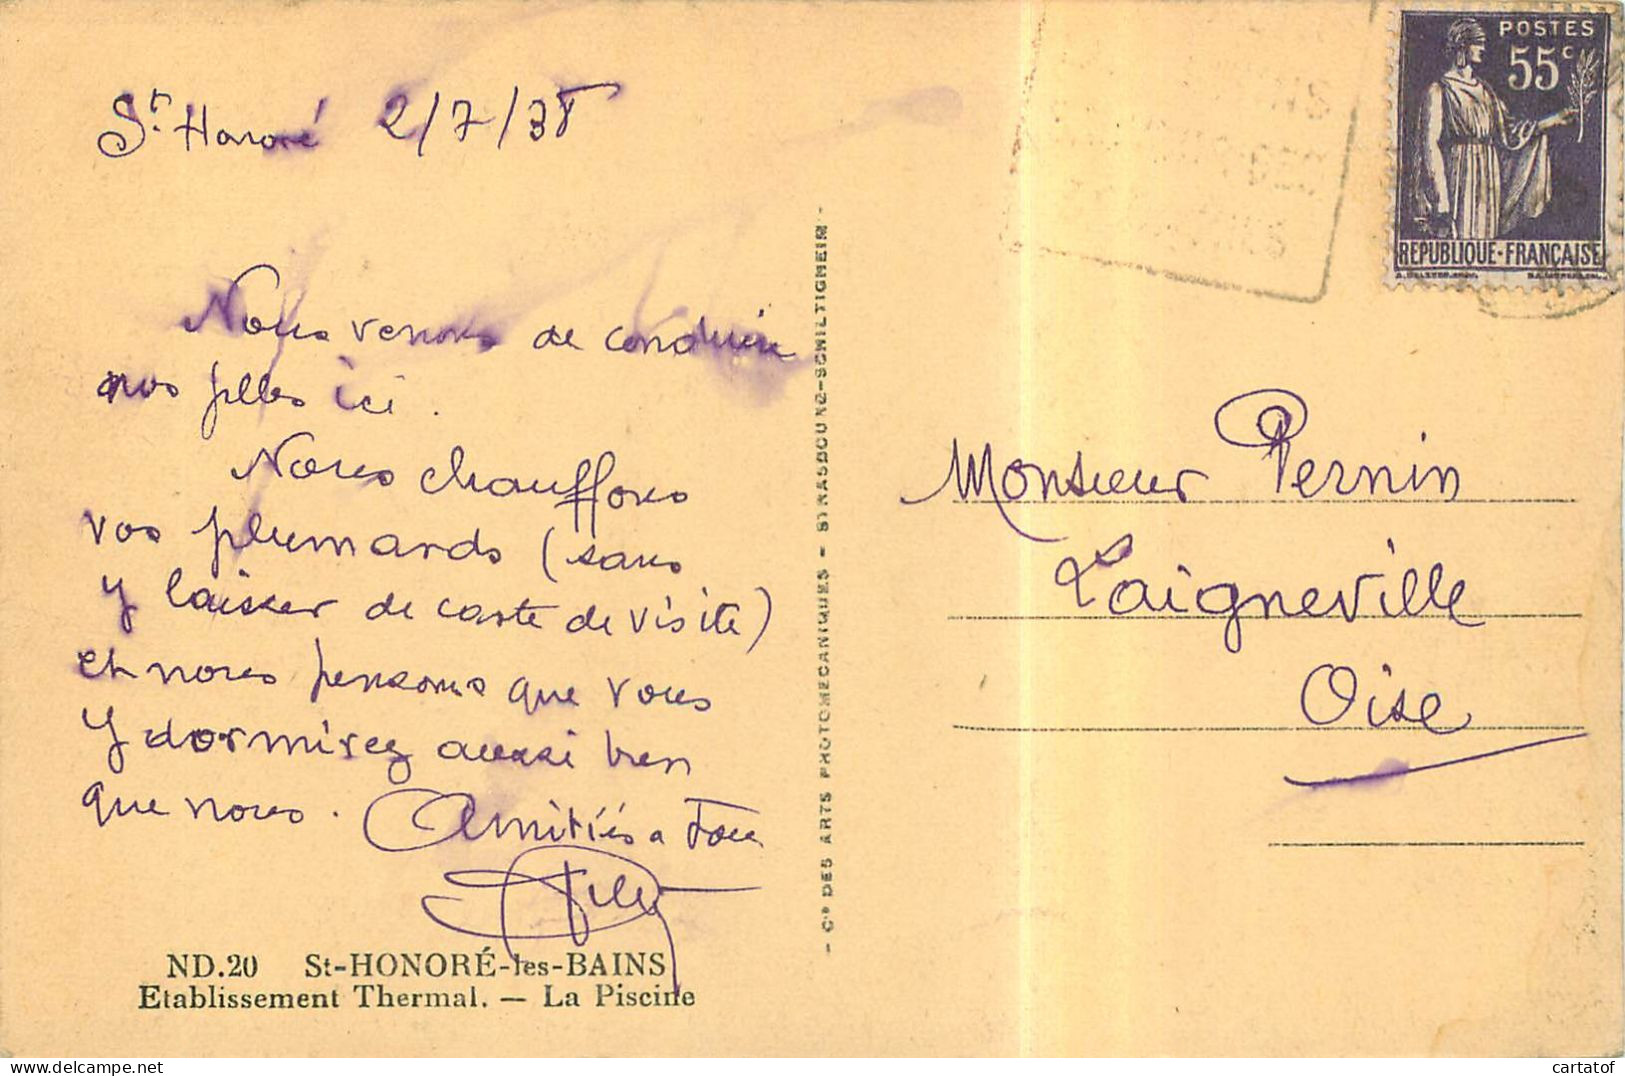 St Honoré 2/7/38
Nous venons de conduire
nos filles ici.
Nous chauffons
vos plumards (sans
y laisser de carte de visite)
et nous pensons que vous
y dormirez aussi bien
que nous. Amitiés a tous
ND.20 St-HONORÉ-les-BAINS
Etablissement Thermal. — La Piscine
- Cie DES ARTS PHOTOMECANIQUES - STRASBOURG-SCHILTIGHEIM -
POSTES
55c
REPUBLIQUE-FRANÇAISE
Monsieur Pernin
Laigneville
Oise
cartatof